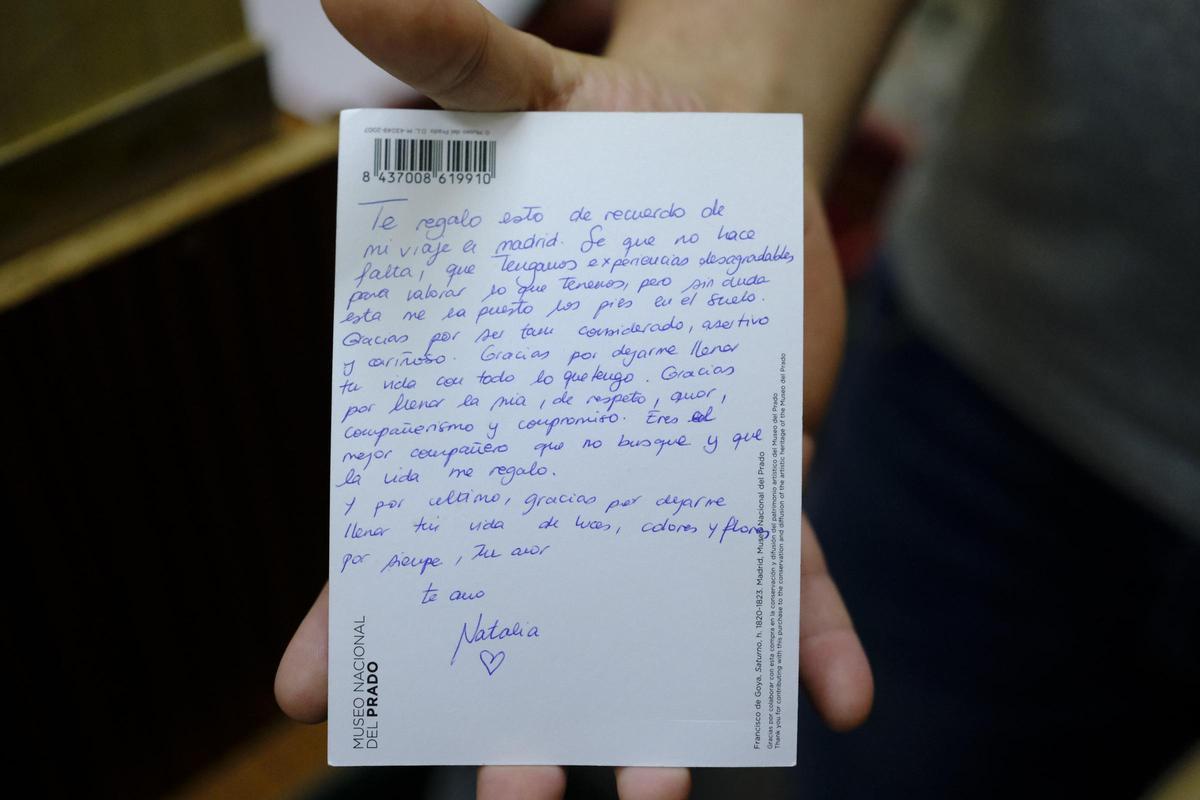 © Museo del Prado D.L. M-43049-2007
8 437008 619910
Te regalo esto de recuerdo de
mi viaje a madrid. Se que no hace
falta, que Tengamos experiencias desagradables
para valorar lo que Tenemos, pero sin duda
esta me ha puesto los pies en el suelo.
Gracias por ser tan considerado, asertivo
y cariñoso. Gracias por dejarme llenar
tu vida con todo lo que tengo. Gracias
por llenar la mia, de respeto, amor,
compañerismo y compromiso. Eres el
mejor compañero que no busque y que
la vida me regalo.
Y por ultimo, gracias por dejarme
llenar tu vida de luces, colores y flores
por siempe, Tu amor
te amo
Natalia
MUSEO NACIONAL
DEL PRADO
Francisco de Goya, Saturno, h. 1820-1823. Madrid, Museo Nacional del Prado
Gracias por colaborar con esta compra en la conservación y difusión del patrimonio artístico del Museo del Prado
Thank you for contributing with this purchase to the conservation and diffusion of the artistic heritage of the Museo del Prado